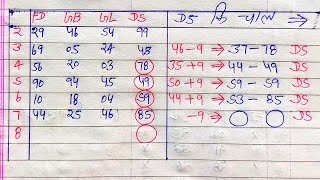 FD GB GL DS DS कि चाल
2 29 46 54 99
3 69 05 24 48 46-9 ⇒ 37-78 DS
4 56 20 03 78 35+9 ⇒ 44-49 DS
5 90 94 45 49 50+9 ⇒ 59-59 DS
6 10 18 04 59 44+9 ⇒ 53-85 DS
7 44 25 46 85 -9 ⇒ DS
8